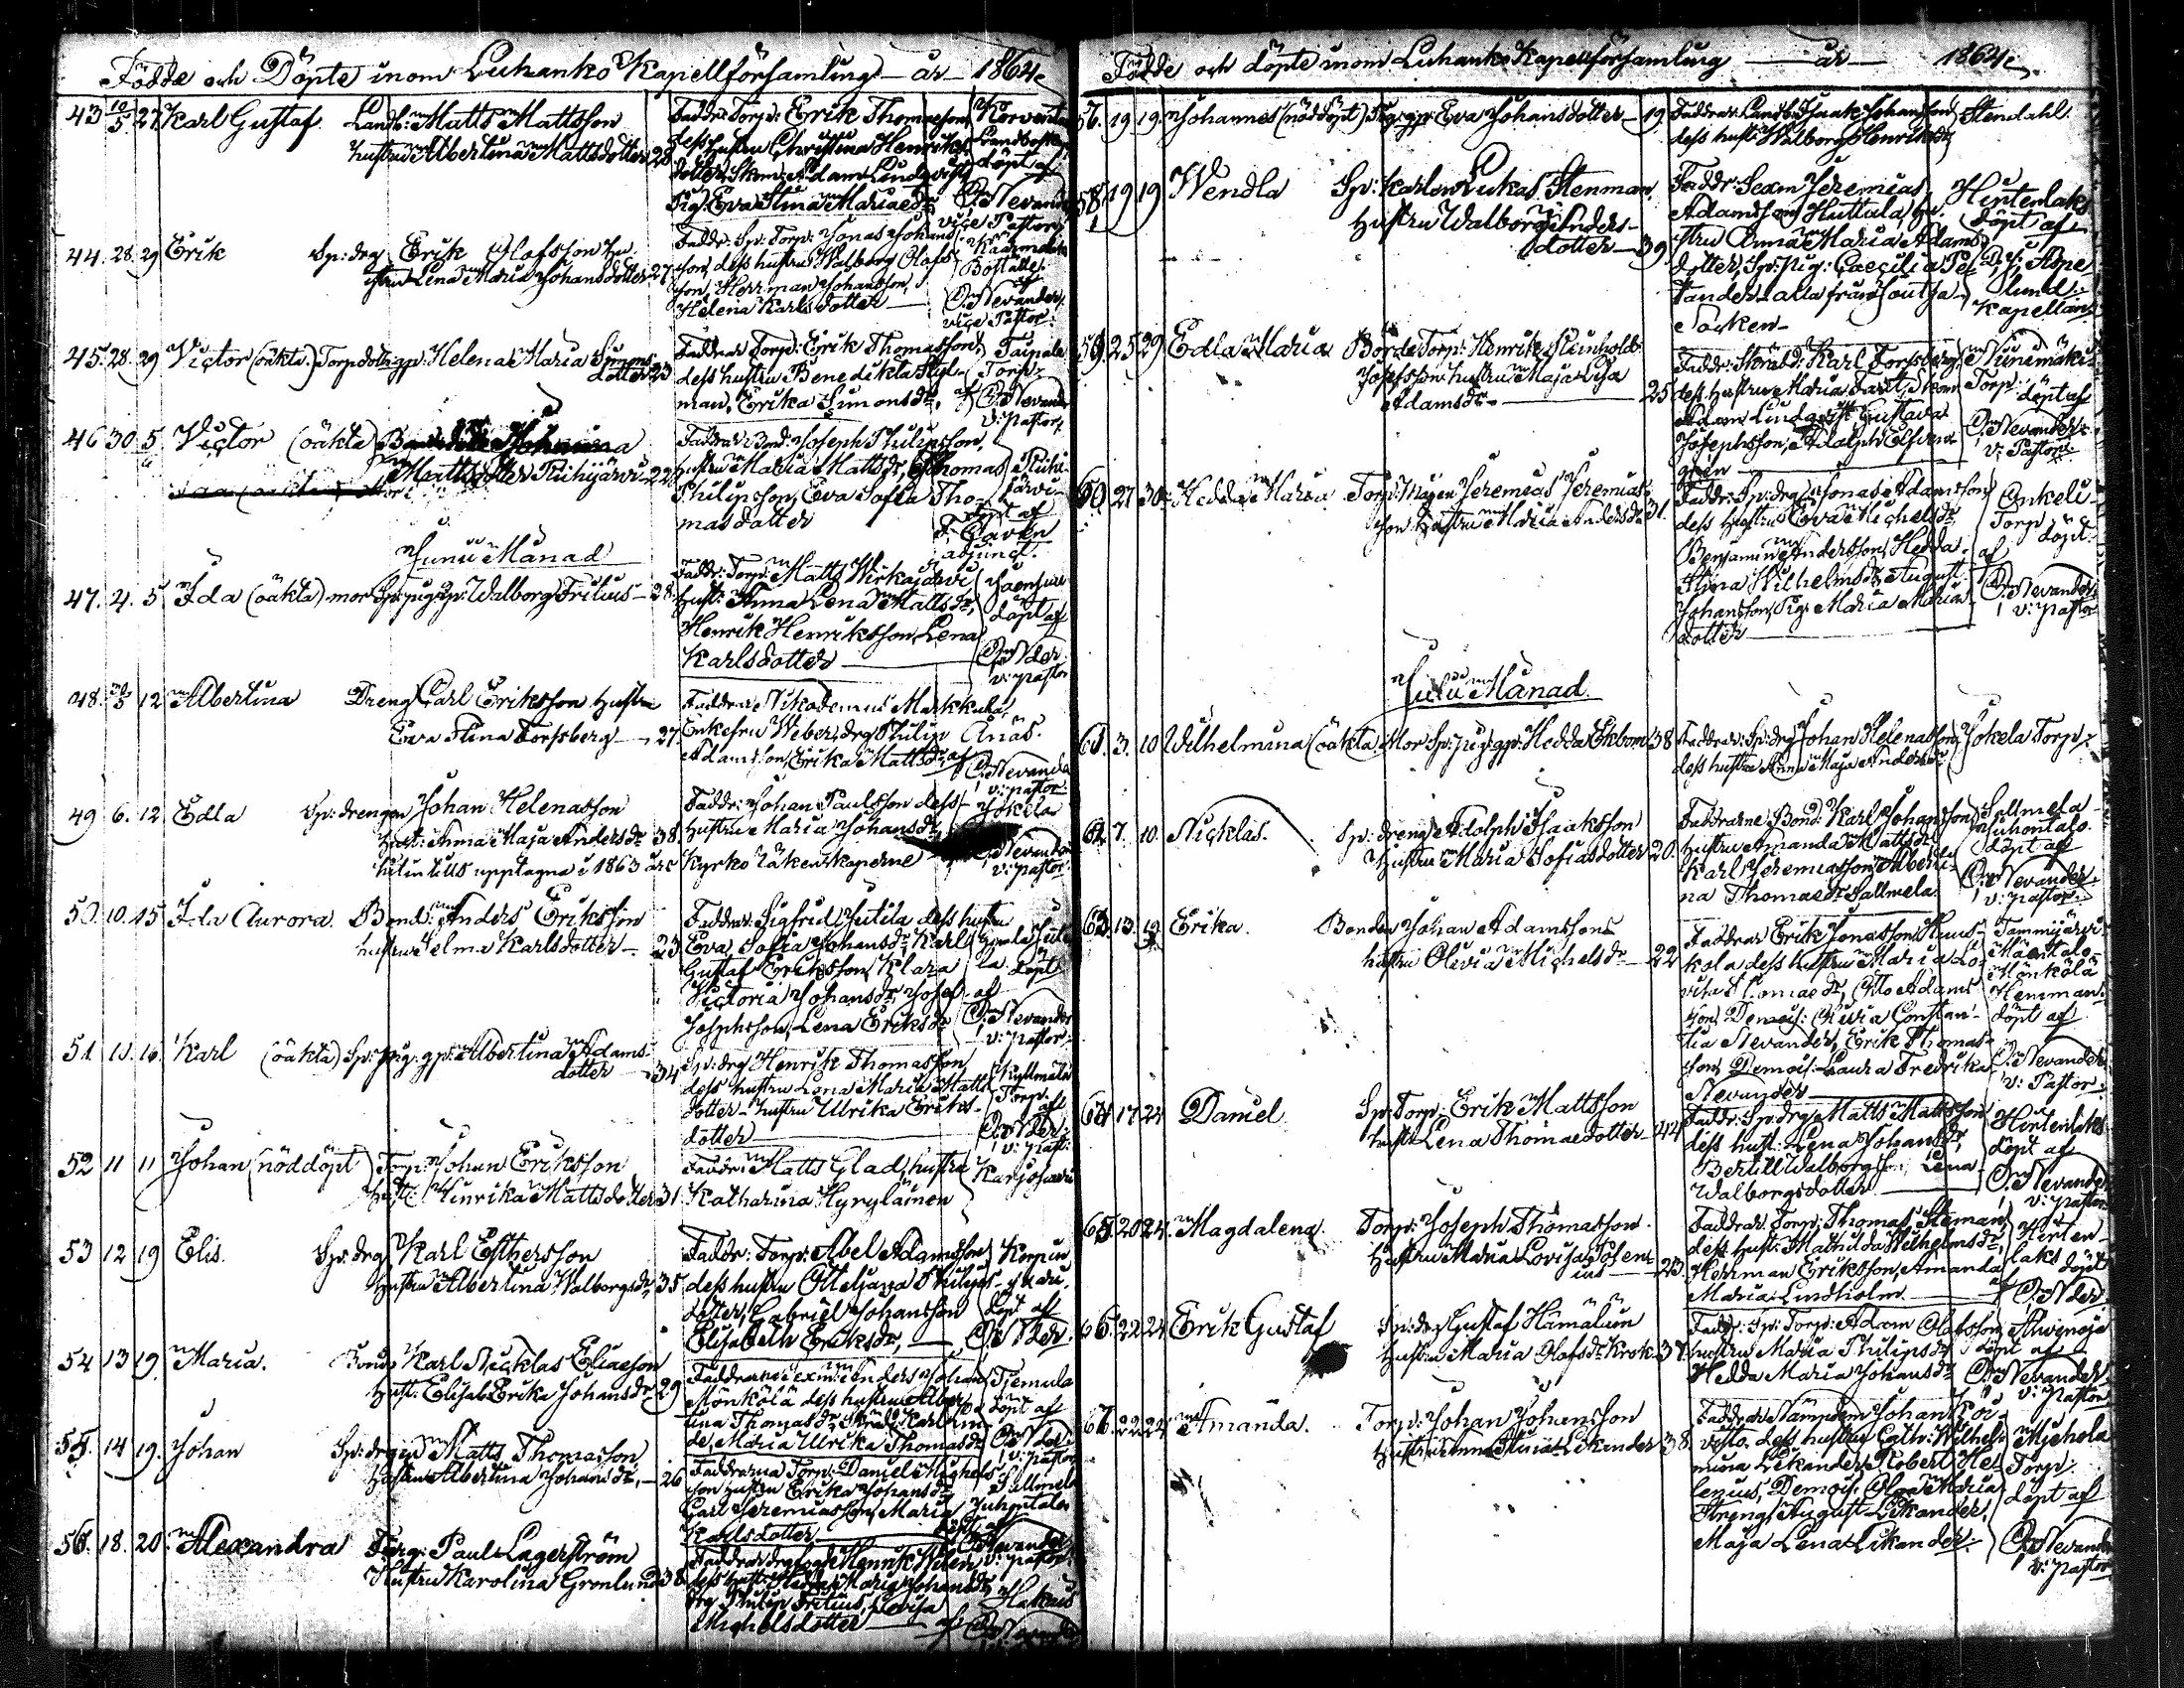 Födde och Döpte inom Luhanko Kapellförsamling år 1864.
43 10/5 27. Karl Gustaf. Landb: Matts Mattsson
hustru Albertina Mattsdotter 28
Faddr: Torp: Erik Thomasson
dess hustru Christina Henriks-
dotter, Adam Lindqvist
Pig: Eva Stina Mariaedr
döpt af
O. Nevander
vice Pastor
44. 28. 29 Erik Sp: drg Erik Olofsson hu-
stru Lena Maria Johansdotter 27
Faddr: Sp: Torp: Jonas Johans-
son, dess hustru Walborg Olofs-
son, Herrman Johansson,
Helena Karlsdotter
O. Nevander,
vice Pastor.
45. 28. 29 Victor (oäkta) Torp dotr gp. Helena Maria Simons-
dotter 23
Faddrar Torp: Erik Thomasson,
dess hustru Benedikta
man, Erika Simonsdr,
Taipale
Torp.
af O. Nevander
v: Pastor
46 30. 5 Victor (oäkta) Johanna
Mattsdotter Riihijärvi 22
Faddrar Bond: Joseph Philipsson,
hustru Maria Mattsdr, Thomas
Philipsson, Eva Sofia Tho-
masdotter
Riihi-
järvi
döpt af
adjunct.
Junii Månad
47. 4. 5 Ida (oäkta) mor Sp: pig. gp: Walborg Fritius 28.
Faddr: Torp: Matts Wirkajärvi
hust: Anna Lena Mattsdr,
Henrik Henriksson, Lena
Karlsdotter
döpt af
O. Nder
v: pastor
48. 12 Albertina Dreng Carl Eriksson hustru
Eva Stina Forssberg 27.
Faddrar Nikodemus Markkula,
Enkefru Weber, drg Philip
Adamsson, Erika Mattsdr, af
Anäs.
O. Nevander
v: pastor
49 6. 12 Edla Sp: drengen Johan Helenasson
Hust: Anna Maja Andersdr 38.
hitintills upptagna i 1863 års
Faddr: Johan Paulsson dess
hustru Maria Johansdr,
Kyrko räkenskaperne
Jokela
O. Nevander
v: pastor
50. 10. 15 Ida Aurora. Bond: Anders Eriksson
hustru Selma Karlsdotter 23
Faddrar: Sigfrid Jutila dess hustru
Eva Sofia Johansdr, Karl
Gustaf Eriksson, Klara
Victoria Johansdr, Josef
Josephsson, Lena Eriksdr
döpt
af
O. Nevander
v: pastor
51 11. 16. Karl (oäkta) Sp: pig. gp: Albertina Adams-
dotter 34
Sp: drg Henrik Thomasson
dess hustru Lena Maria Matts-
dotter, hustru Ulrika Eriks-
dotter
Torp.
af
O. Nder.
v: past:
52 11 11 Johan (nöddöpt) Torp: Johan Eriksson
hust: Hinrika Mattsdotter 31
Faddr: Matts Glad, hustru
Katharina Hyryläinen
Karjosaari
53 12 19 Elis. Sp: drg Karl Esthersson
hustru Albertina Walborgsdr 35
Faddr: Torp: Abel Adamsson
dess hustru Otteljana Philips-
dotter, Gabriel Johansson
Elisabeth Eriksdr,
döpt af
O. Nder.
54 13 19. Maria. Bond: Karl Nicklas Eliaeson
Hust: Elisab. Erika Johansdr 29
Faddrarne: Anders Johan
Mönkölä dess hustru Alber-
tina Thomasdr,
Maria Ulrika Thomasdr
döpt af
O. Nder.
v: pastor
55. 14 19. Johan Sp: drgen Matts Thomasson
hustru Albertina Johansdr, 26
Faddrarna Torp: Daniel Michels-
son hustru Erika Johansdr
Carl Jeremiasson, Maria
Karlsdotter
Sallmela
Juhontalo
döpt af
O. Nevander
v: pastor
56. 18. 20. Alexandra Färg: Paul Lagerström
Hustru Karolina Gronlund 38
dess hust: Hedda Maria Johansdr
drg Philip Fritius, Lovisa
Michelsdotter af
O. Nevander
Födde och döpte inom Luhanko Kapellförsamling år 1864.
57. 19 19 Johannes (nöddöpt) Pig: gp: Eva Johansdotter 19.
Faddrar: Landb: Isaak Johansson
dess hust: Walborg Henriksdr
Stendahl.
58. 19 19 Wendla Sp: karlen Lukas Stenman,
hustru Walborg Anders-
dotter 39
Faddr: Sexm Jeremias
Adamsson Huttula, hu-
stru Anna Maria Adams-
dotter, Sp: pig: Caecilia
alla från Joutsa
Socken
Hirtenlaks
döpt af
lund.
Kapellan
59. 25 29 Edla Maria Torp: Henrik Reinholds
Josefsson hustru Maja Lisa
Adamsdr 25
Faddr: Skrädd: Karl Forssberg,
dess hustru Maria
Adam Lindqvist, Gustava
Josephsson, Adolph
gren
Niinimäki
Torp
döpt af
O. Nevander.
v: Pastor
60. 27 30. Hedda Maria Torp: mågen Jeremias Jeremias-
son hustru Maria Andersdr 31.
Faddr: Sp: drg Jonas Adamsson,
dess hustru Eva Michelsdr,
Benjamin Andersson, Hedda
Stina Wilhelmsdr, August
Johansson, Pig: Maria Maria-
dotter
Onkeli
Torp
döpt
af
O. Nevander.
v: pastor
Julii Månad.
61. 3. 10 Wilhelmina (oäkta) Mor Sp: pig: gp: Hedda Ekbom 38
Faddrar: Sp: drg Johan Helenasson,
dess hustru Anna Maja Andersdr
Jokela Torp.
62. 7. 10. Nicklas. Sp: dreng Adolph Isaaksson
hustru Maria Sofiasdotter 20.
Faddrarne Bond: Karl Johansson
hustru Amanda Mattsdr
Karl Jeremiasson, Alberti-
na Thomaedr Sallmela.
Sallmela
Juhontalo.
döpt af
O. Nevander.
v: pastor.
63. 13. 19 Erika. Bonden Johan Adamssons
hustru Olivia Michelsdr 22
Faddrar Erik Jonasson
kola dess hustru Maria Lo-
visa Thomaedr, Otto Adams-
son, Demois: Olivia Constan-
tia Nevander, Erik Thomas-
son, Demois: Laura Fredrika
Nevander
Tammijärvi
Mäentalo
Mönkölä
Hemman.
döpt af
O. Nevander
v: Pastor.
64 17 24 Daniel Sp: Torp: Erik Mattsson
hustr Lena Thomaedotter 44
Faddr: Sp: drg Matts Mattsson
dess hust. Lena Johansdr,
Bertill Walborgss:, Lena
Walborgsdotter
Hirtenlaks
döpt af
O. Nevander
v: pastor
65. 20 24. Magdalena. Torp: Joseph Thomasson.
hustru Maria Lovisa Rosen-
ius 23.
Faddrar Torp: Thomas Steman,
dess hust: Mathilda Wilhelmsdr,
Herrman Eriksson, Amanda
Maria Lindholm
Hirten-
laks döpt
af O. Nder
66. 22 24 Erik Gustaf Sp: dr. Gustaf Hämäläin
hustru Maria Olofsdr Krok 37.
Faddr: Sp: Torp: Adam Olofsson
hustru Maria Philipsdr
Hedda Maria Johansdr
Ahvenoja
döpt af
O. Nevander
v: Pastor
67. 22 24 Amanda. Torp: Johan Johansson
hustru Anna Stina Likander 38.
Faddrar Nämpdem Johan Koi-
visto, dess hustru Cath: Wilhel-
mina Likander, Robert He-
lenius, Demois. Olga Maria
Streng, August Likander,
Maja Lena Likander.
Michola
Torp.
döpt af
O. Nevander
v: Pastor